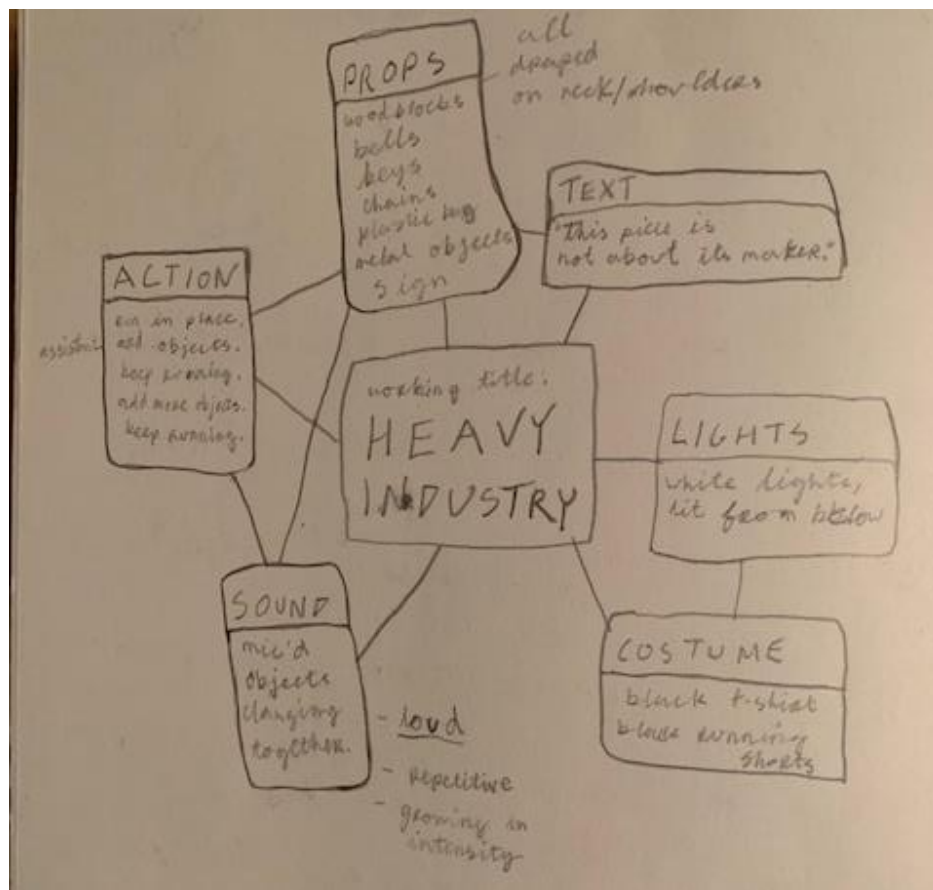 PROPS
woodblocks
bells
keys
chains
plastic bag
metal objects
sign
all
draped
on neck/shoulders
TEXT
"this piece is
not about its maker."
ACTION
run in place.
add objects.
keep running.
add more objects.
keep running.
working title:
HEAVY
INDUSTRY
LIGHTS
white lights,
lit from below
SOUND
mic'd
objects
clanging
together.
- loud
- repetitive
- growing in
intensity
COSTUME
black t-shirt
black running
shorts